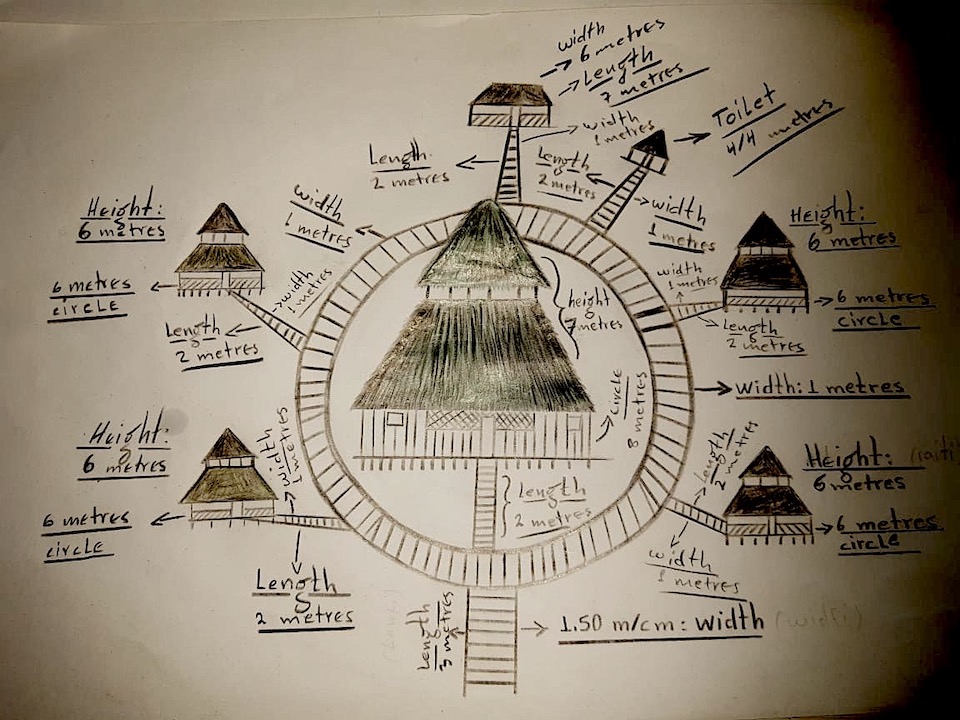 width
6 metres
Length
7 metres
width
1 metres
Toilet
4/4 metres
Length
2 metres
Length
2 metres
width
1 metres
width
1 metres
Height:
6 metres
6 metres
circle
width
1 metres
Length
2 metres
Height:
6 metres
width
1 metres
6 metres
circle
Length
2 metres
height
7 metres
width: 1 metres
circle
8 metres
Height:
6 metres
width
1 metres
6 metres
circle
Length
2 metres
Length
2 metres
Length
2 metres
Height:
6 metres
6 metres
circle
width
1 metres
Length
metres
1.50 m/cm: width